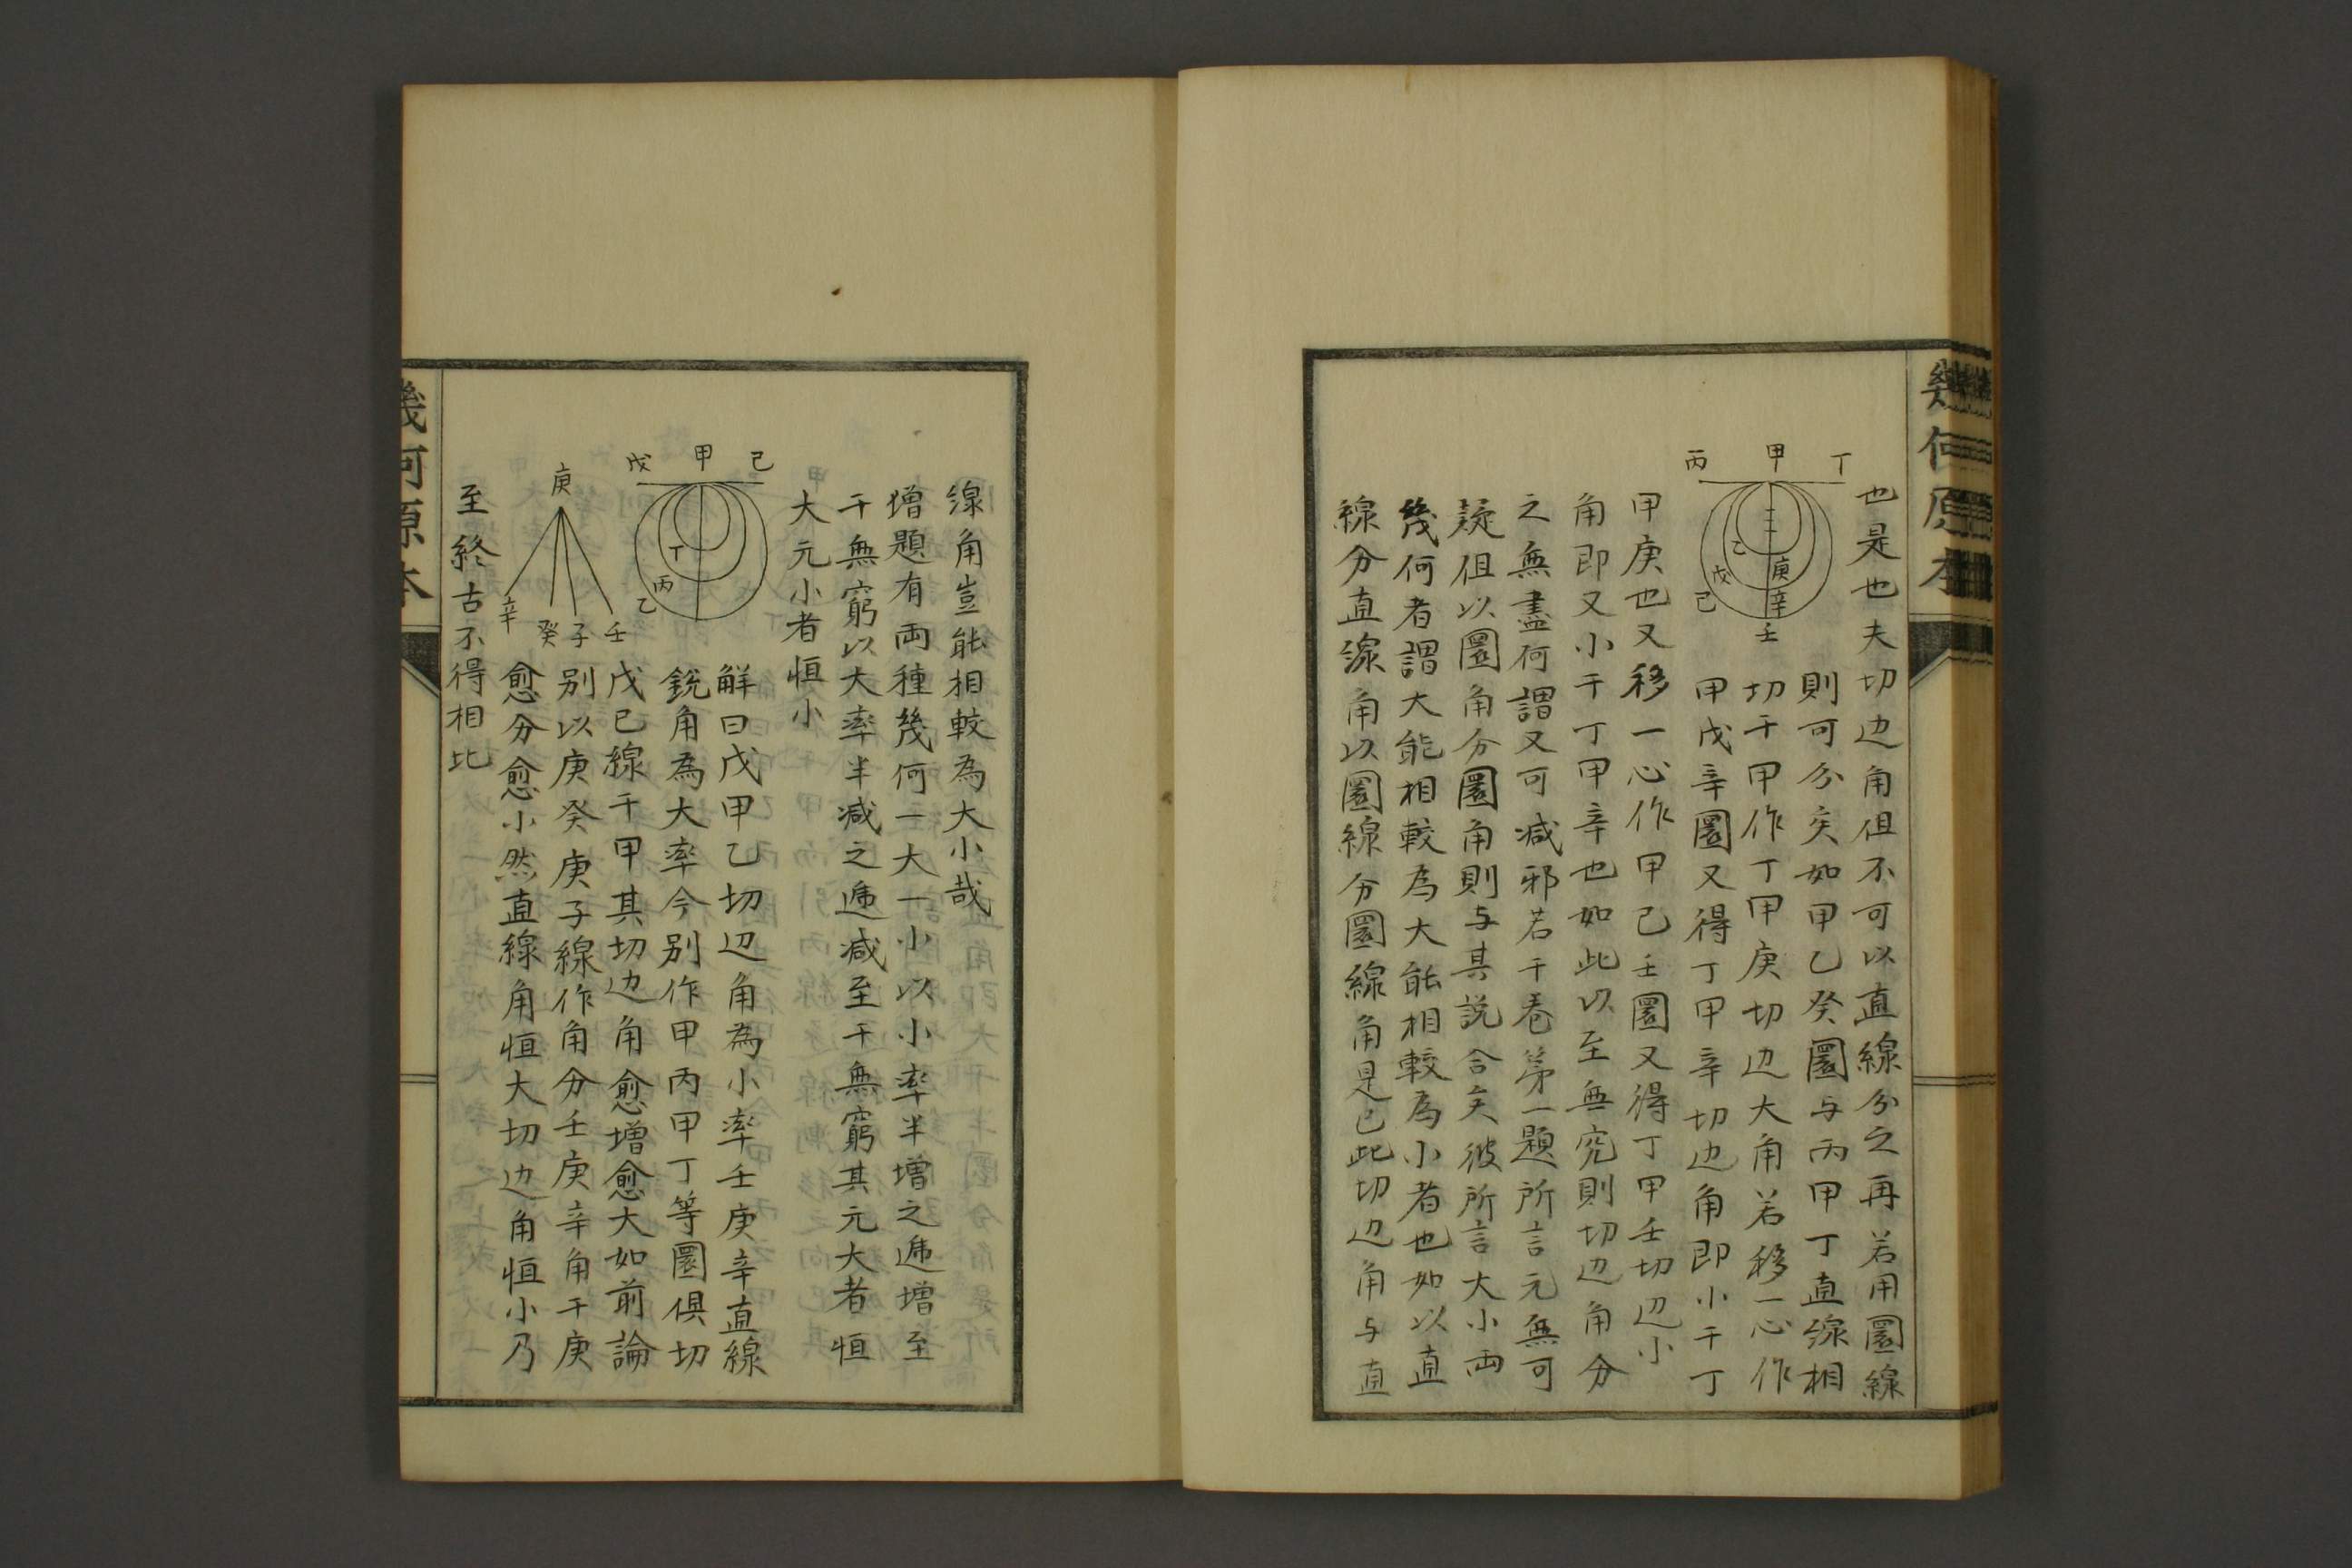 幾何原本
也是也夫切边角但不可以直線分之再若用圜線
丙 甲 丁
乙 戊 己 庚 辛 壬
則可分矣如甲乙癸圜与丙甲丁直線相
切于甲作丁甲庚切边大角若移一心作
甲戊辛圜又得丁甲辛切边角即小于丁
甲庚也又移一心作甲己壬圜又得丁甲壬切边小
角即又小于丁甲辛也如此以至無究則切边角分
之無盡何謂又可减邪若干卷第一題所言元無可
疑但以圜角分圜角則与其説合矣彼所言大小両
幾何者謂大能相較為大能相較為小者也如以直
線分直線角以圜線分圜線角是已此切边角与直
線角豈能相較為大小哉
增題有両種幾何一大一小以小率半增之逓增至
于無窮以大率半减之逓减至于無窮其元大者恒
大元小者恒小
戊 甲 己
丁 丙 乙
庚
辛 癸 子 壬
解曰戊甲乙切边角為小率壬庚辛直線
銳角為大率今别作甲丙甲丁等圜俱切
戊己線于甲其切边角愈增愈大如前論
别以庚癸庚子線作角分壬庚辛角于庚
愈分愈小然直線角恒大切边角恒小乃
至終古不得相比
幾何原本